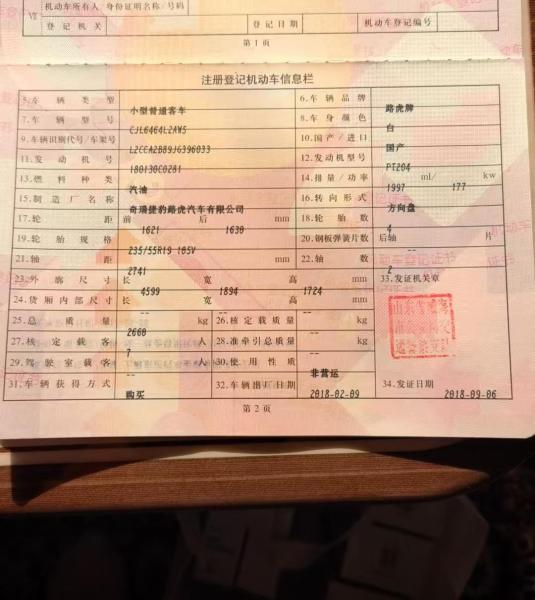 机动车所有人/身份证明名称/号码
VII
登记机关
登记日期
机动车登记编号
第1页
注册登记机动车信息栏
5.车辆类型 小型普通客车 6.车辆品牌 路虎牌
7.车辆型号 CJL6464L2AW5 8.车身颜色 白
9.车辆识别代号/车架号 L2CCA2B89JG396033 10.国产/进口 国产
11.发动机号 180130C0281 12.发动机型号 PT204
13.燃料种类 汽油 14.排量/功率 1997 ml/ 177 kw
15.制造厂名称 奇瑞捷豹路虎汽车有限公司 16.转向形式 方向盘
17.轮距 前 1621 后 1630 mm 18.轮胎数 4
19.轮胎规格 235/55R19 105V 20.钢板弹簧片数 后轴 -- 片
21.轴距 2741 mm 22.轴数 2
23.外廓尺寸 长 4599 宽 1894 高 1724 mm 33.发证机关章
24.货厢内部尺寸 长 -- 宽 -- 高 -- mm
25.总质量 2660 kg 26.核定载质量 -- kg
27.核定载客 7 人 28.准牵引总质量 -- kg
29.驾驶室载客 -- 人 30.使用性质 非营运
31.车辆获得方式 购买 32.车辆出厂日期 2018-02-09 34.发证日期 2018-09-06
第2页